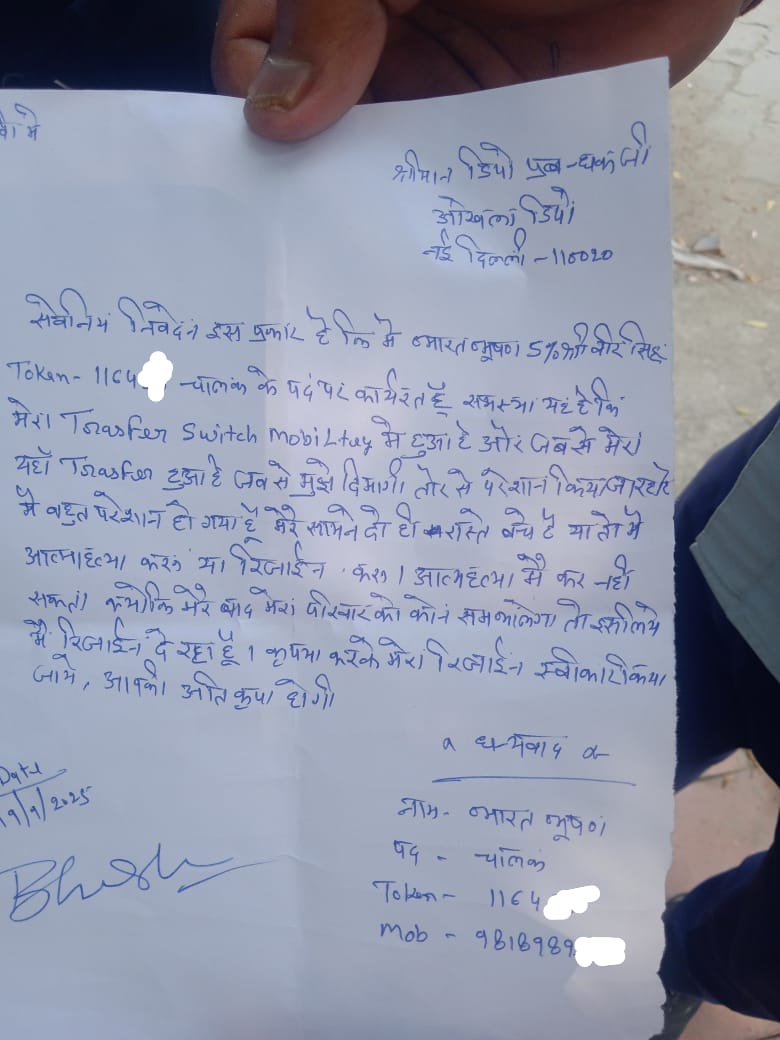 सेवा मे
श्रीमान डिपो प्रबन्धक जी
ओखला डिपो
नई दिल्ली - 110020
सेवनिय निवेदन इस प्रकार है कि मै भारत भूषण S/o श्री वीर सिंह
Token - 1164 चालक के पद पर कार्यरत हूँ समस्या यह है कि
मेरा Trasfer Switch Mobiltuy मे हुआ है और जब से मेरा
यहाँ Trasfer हुआ है जब से मुझे दिमागी तोर से परेशान किया जा रहा है
मै बहुत परेशान हो गया हूँ मेरे सामने दो ही रास्ते बचे है या तो मै
आत्माहत्या करू या रिजाईन करू। आत्महत्या मै कर नही
सकता क्योकि मेरे बाद मेरा परिवार को कोन समभालेगा तो इसलिये
मै रिजाईन दे रहा हूँ। कृप्या करके मेरा रिजाईन स्वीकार किया
जाये, आपकी अति कृपा होगी
धन्यवाद
Date
19/9/2025
नाम - भारत भूषण
पद - चालक
Token - 1164
Mob - 9818989